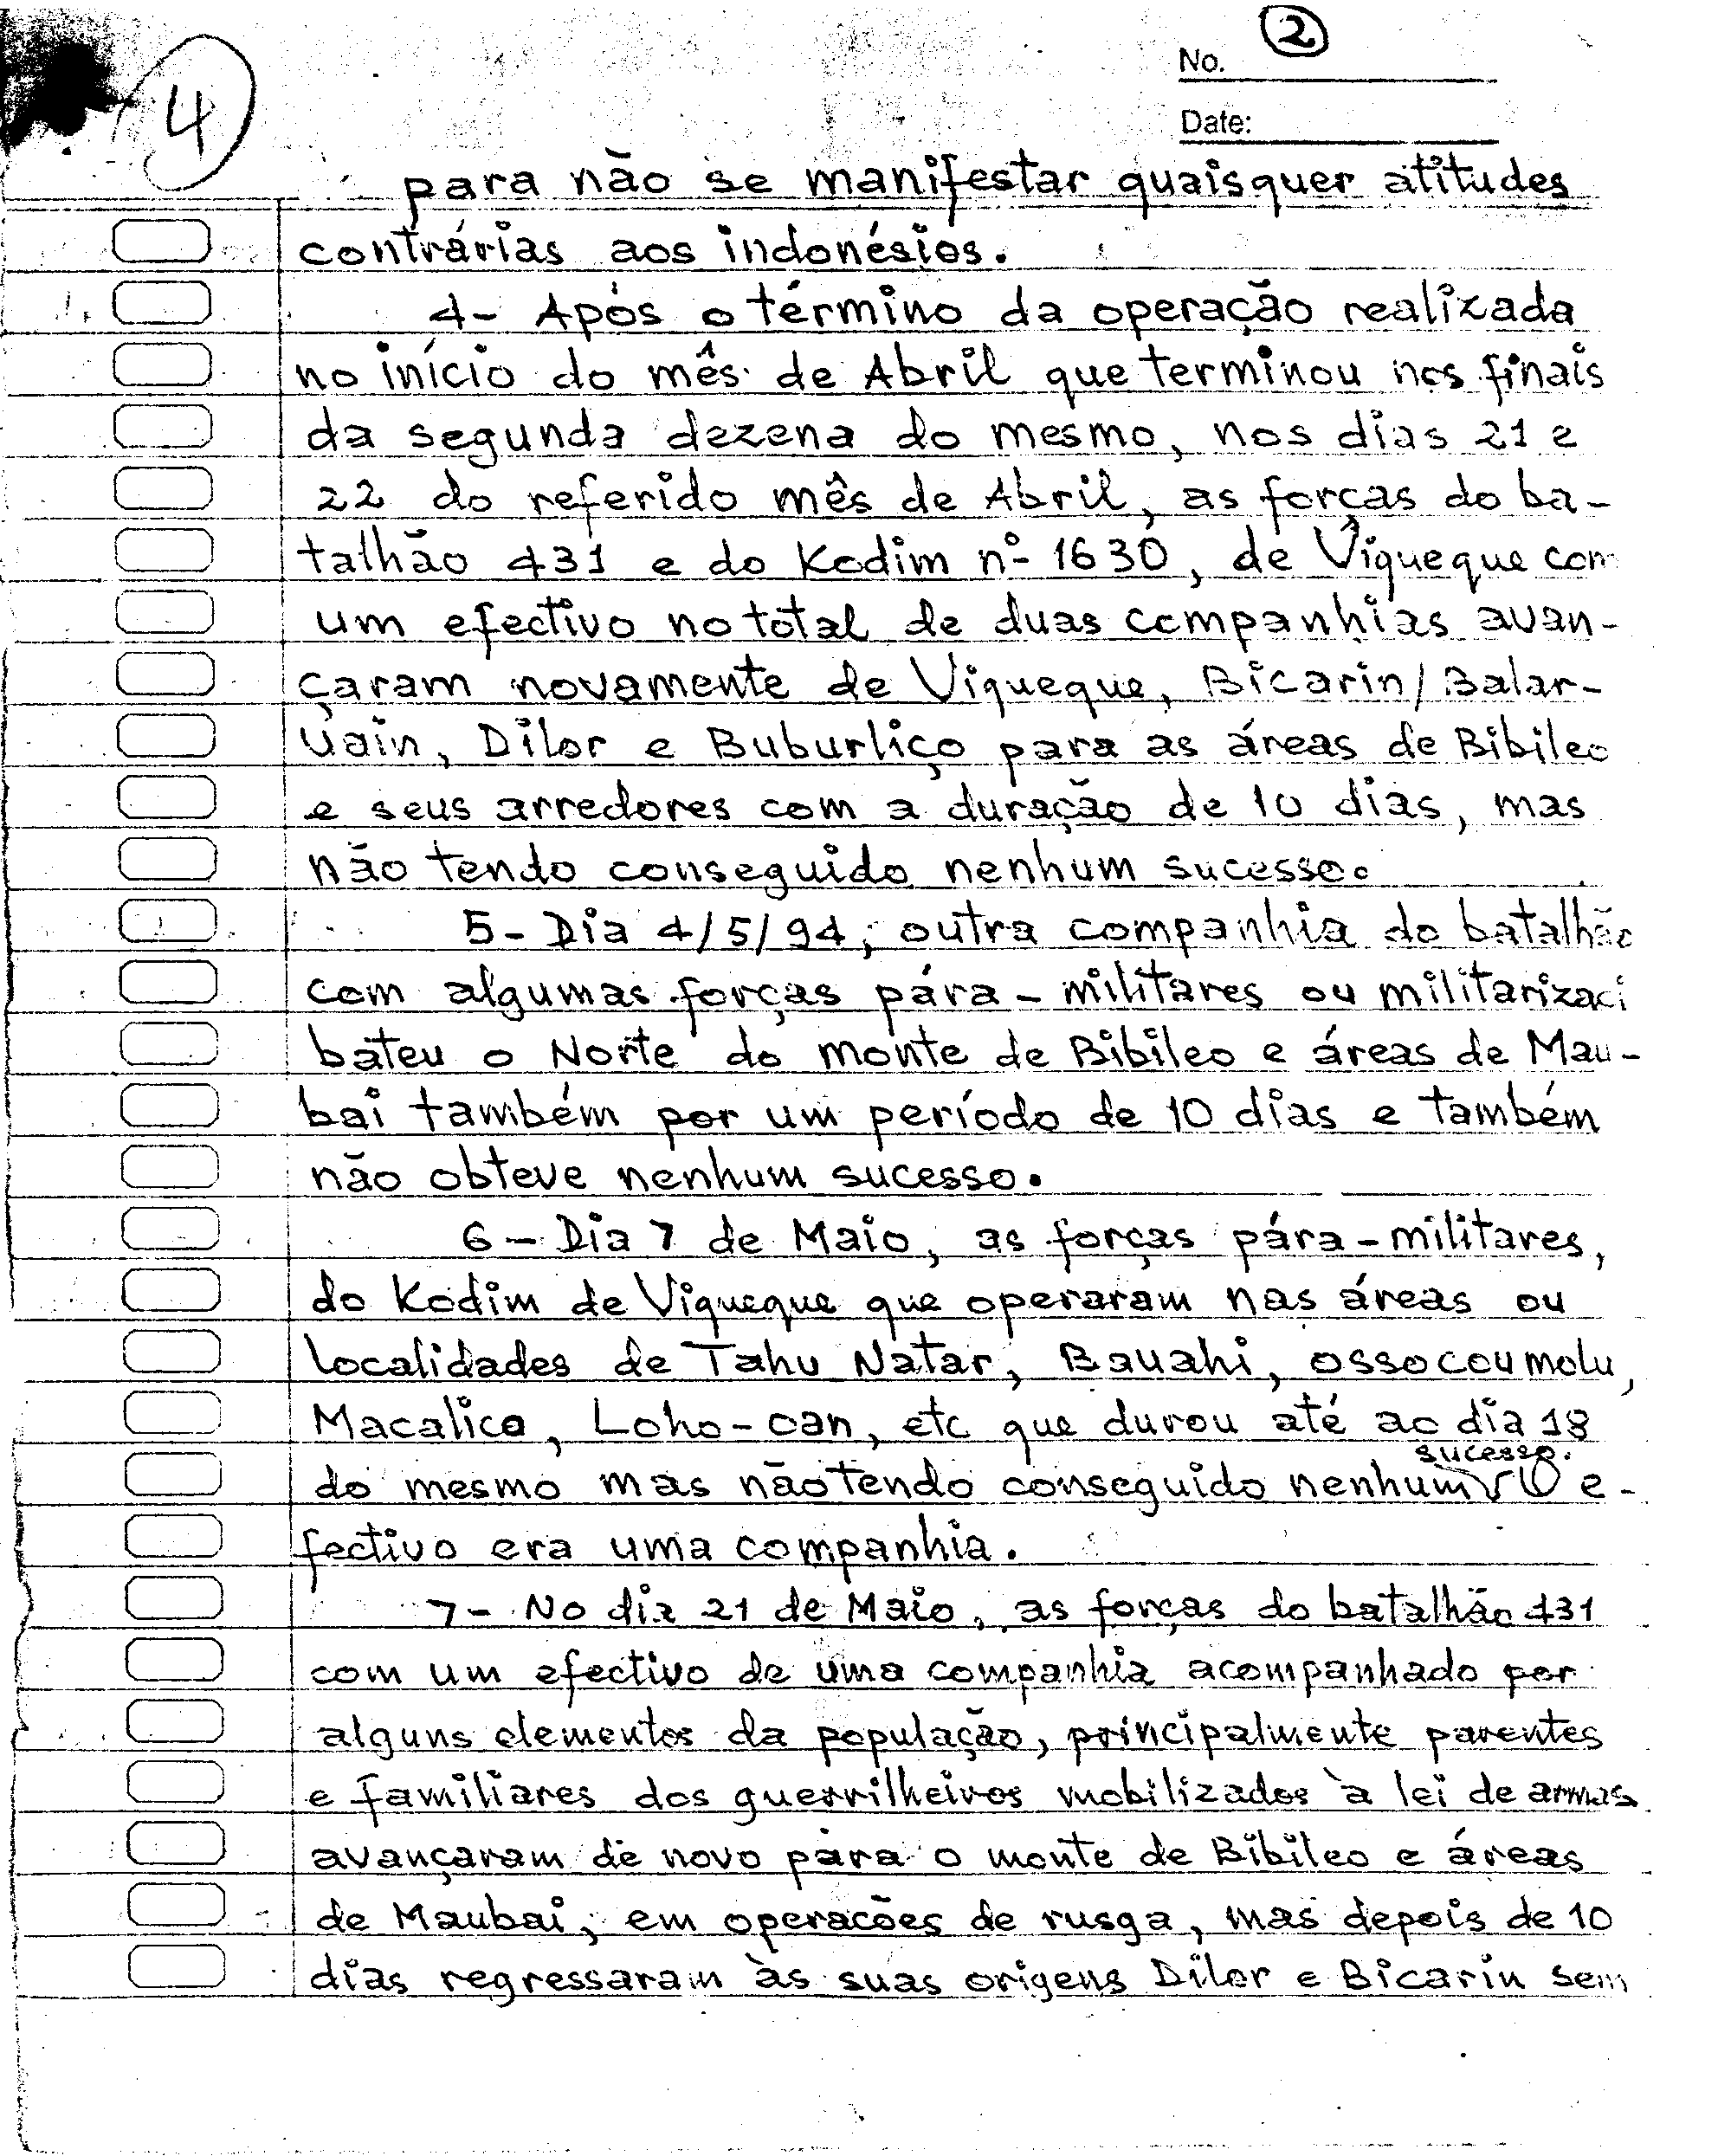 4
No. 2
Date:
para não se manifestar quaisquer atitudes
contrárias aos indonésios.
4- Após o término da operação realizada
no início do mês de Abril que terminou nos finais
da segunda dezena do mesmo, nos dias 21 e
22 do referido mês de Abril, as forças do ba-
talhão 431 e do Kodim nº 1630, de Viqueque com
um efectivo no total de duas companhias avan-
çaram novamente de Viqueque, Bicarin/Balar-
Uain, Dilor e Buburliço para as áreas de Bibileo
e seus arredores com a duração de 10 dias, mas
não tendo conseguido nenhum sucesso.
5- Dia 4/5/94, outra companhia do batalhão
com algumas forças pára-militares ou militarizaci
bateu o Norte do monte de Bibileo e áreas de Mau-
bai também por um período de 10 dias e também
não obteve nenhum sucesso.
6- Dia 7 de Maio, as forças pára-militares,
do Kodim de Viqueque que operaram nas áreas ou
localidades de Tahu Natar, Bauahi, ossocoumolu,
Macalico, Loho-oan, etc que durou até ao dia 18
do mesmo mas não tendo conseguido nenhum sucesso. O e-
fectivo era uma companhia.
7- No dia 21 de Maio, as forças do batalhão 431
com um efectivo de uma companhia acompanhado por
alguns elementos da população, principalmente parentes
e familiares dos guerrilheiros mobilizados à lei de armas
avançaram de novo para o monte de Bibileo e áreas
de Maubai, em operacões de rusga, mas depois de 10
dias regressaram às suas origens Dilor e Bicarin sem